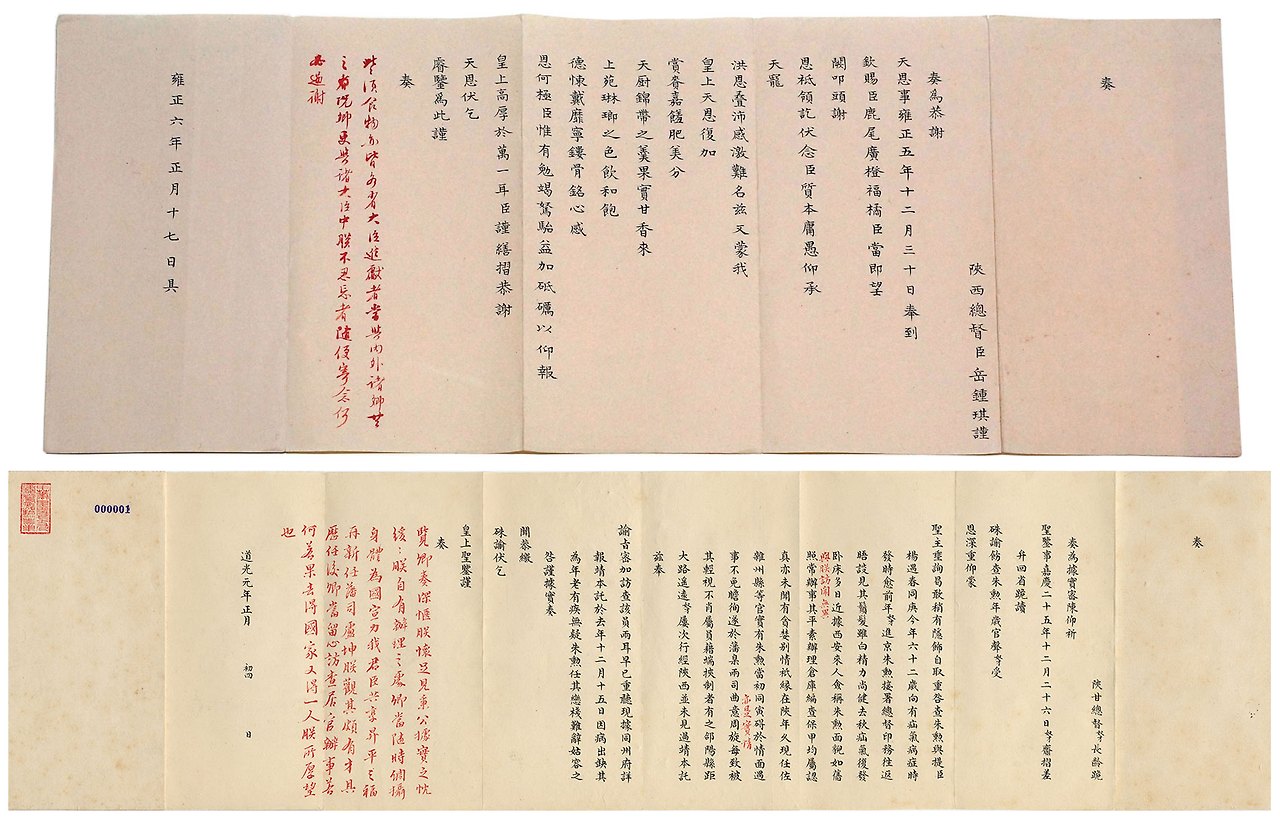 奏
陝西總督臣岳鍾琪謹
奏為恭謝
天恩事雍正五年十二月三十日奉到
欽賜臣鹿尾廣橙福橘臣當即望
闕叩頭謝
恩祗領訖伏念臣質本庸愚仰承
天寵
洪恩疊沛感激難名茲又蒙我
皇上天恩復加
賞賚嘉饈肥美分
天厨錦帶之羹果實甘香來
上苑琳瑯之色飲和飽
德悚戴靡寧鏤骨銘心感
恩何極臣惟有勉竭駑駘益加砥礪以仰報
皇上高厚於萬一耳臣謹繕摺恭謝
天恩伏乞
睿鑒為此謹
奏
些須食物亦皆各省大臣進獻者當與內外諸卿共
之者況卿更與諸大臣中朕不忍忘者隨便寄念何
必過謝
雍正六年正月十七日具
奏
陝甘總督臣長齡跪
奏為據實密陳仰祈
聖鑒事嘉慶二十五年十二月二十六日臣齎摺差
弁回省跪讀
硃諭飭查朱勲年歲官聲臣受
恩深重仰蒙
聖主垂詢曷敢稍有隱飾自取重咎查朱勲與提臣
楊遇春同庚今年六十二歲向有疝氣病症時
發時愈前年臣進京朱勲接署總督印務往返
晤談見其鬚髮雖白精力尚健去秋疝氣復發
卧床多日近據西安來人僉稱朱勲面貌如舊
與朕訪聞無異
照常辦事其平素辦理倉庫編查保甲均屬認
真亦未聞有貪婪別情祗緣在陝年久現任佐
雜州縣等官實有朱勲當初同寅碍於情面遇
亦是實情
事不免瞻徇遂於藩臬兩司曲意周旋每致被
其輕視不肖屬員藉端挾制者有之郃陽縣距
大路遥遠臣屢次行經陝西並未見過靖本託
茲奉
諭旨密加訪查該員兩耳早已重聽現據同州府詳
報靖本託於去年十二月十五日因病出缺其
為年老有疾無疑朱勲任其戀棧難辭姑容之
咎謹據實奏
聞恭繳
硃諭伏乞
皇上聖鑒謹
奏
覽卿奏深愜朕懷足見秉公據實之忱
緩緩朕自有辦理之處卿當隨時調攝
身體為國宣力我君臣共享昇平之福
再新任藩司盧坤朕觀其頗有才具
歷任後卿當留心訪查居官辦事若
何若果去得國家又得一人朕所厚望
也
道光元年正月初四日
000001